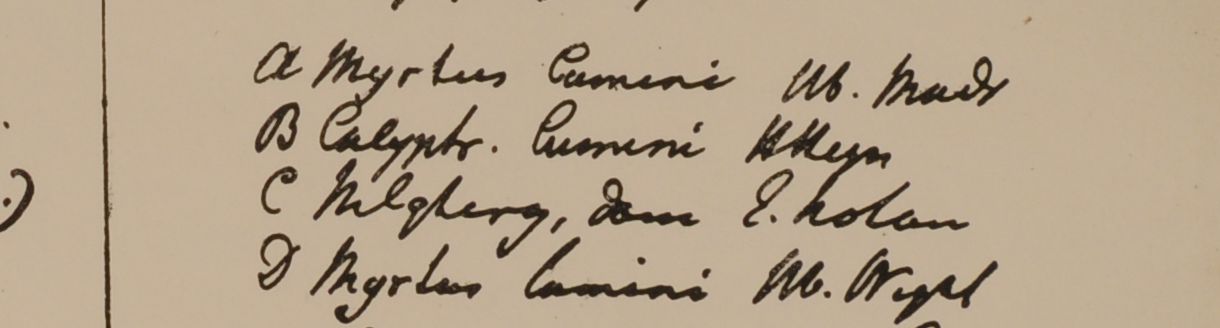 A Myrtus Cumini Hb. Madr
B Calyptr. Cumini H Heyn
C Nilghery, dom E. Nolan
D Myrtus Cumini Hb. Wight